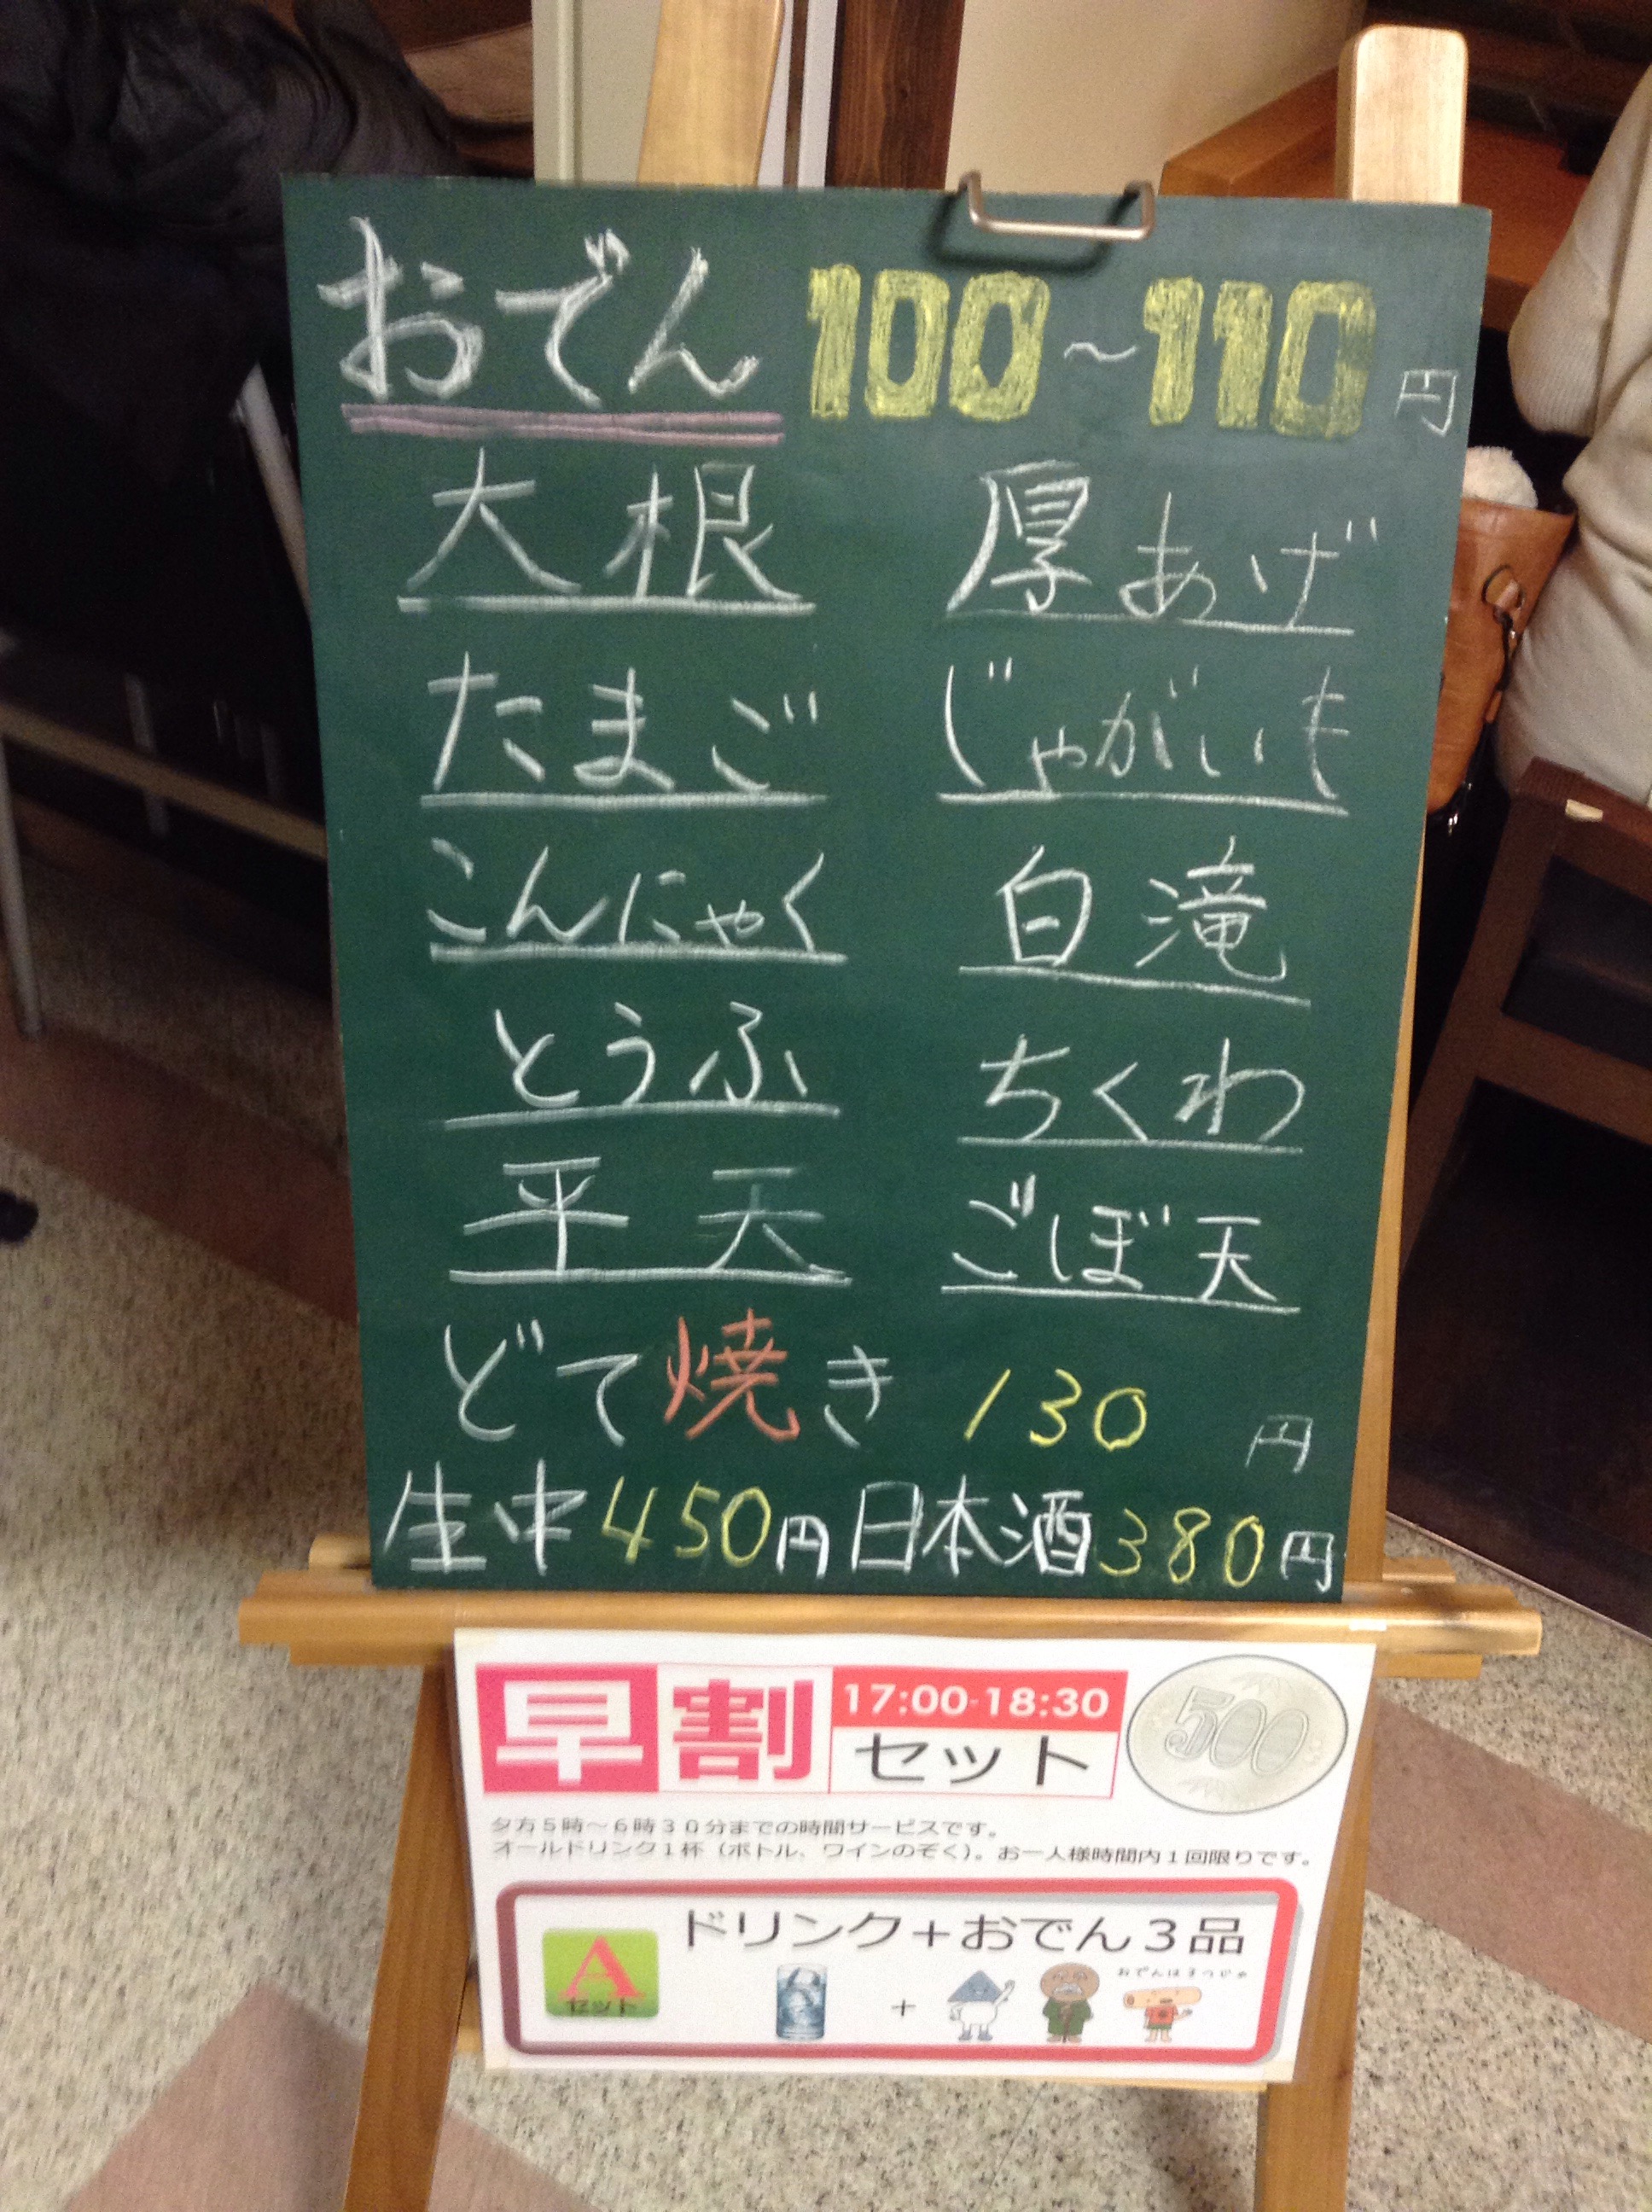 おでん 100～110円
大根 厚あげ
たまご じゃがいも
こんにゃく 白滝
とうふ ちくわ
平天 ごぼ天
どて焼き 130円
生中450円 日本酒380円
早割 17:00-18:30
セット
500
夕方５時～６時３０分までの時間サービスです。
オールドリンク１杯（ボトル、ワインのぞく）。お一人様時間内１回限りです。
ドリンク＋おでん３品
A
セット
+
おでんはまつじゃ